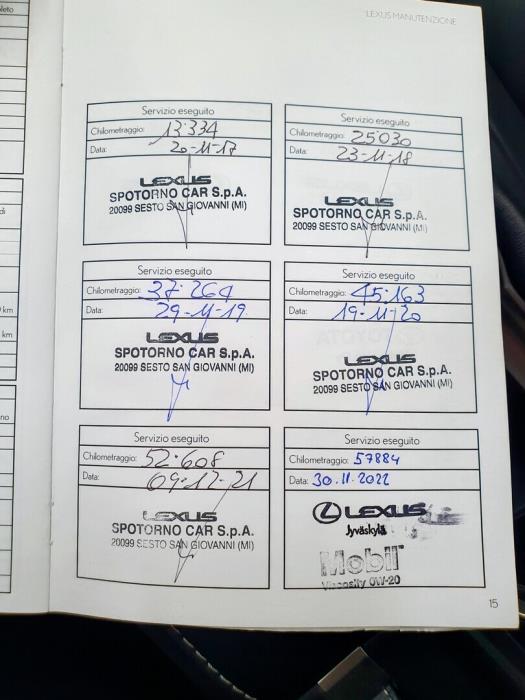 LEXUS MANUTENZIONE
leto
di
km
km
no
Servizio eseguito
Chilometraggio: 13.334
Data: 20-11-17
LEXUS
SPOTORNO CAR S.p.A.
20099 SESTO SAN GIOVANNI (MI)
Servizio eseguito
Chilometraggio: 25.030
Data: 23-11-18
LEXUS
SPOTORNO CAR S.p.A.
20099 SESTO SAN GIOVANNI (MI)
Servizio eseguito
Chilometraggio: 37.264
Data: 29-11-19
LEXUS
SPOTORNO CAR S.p.A.
20099 SESTO SAN GIOVANNI (MI)
Servizio eseguito
Chilometraggio: 45.163
Data: 19-11-20
LEXUS
SPOTORNO CAR S.p.A.
20099 SESTO SAN GIOVANNI (MI)
Servizio eseguito
Chilometraggio: 52.608
Data: 09-12-21
LEXUS
SPOTORNO CAR S.p.A.
20099 SESTO SAN GIOVANNI (MI)
Servizio eseguito
Chilometraggio: 57884
Data: 30.11.2022
LEXUS
Jyväskylä
Mobil
Viscosity 0W-20
15